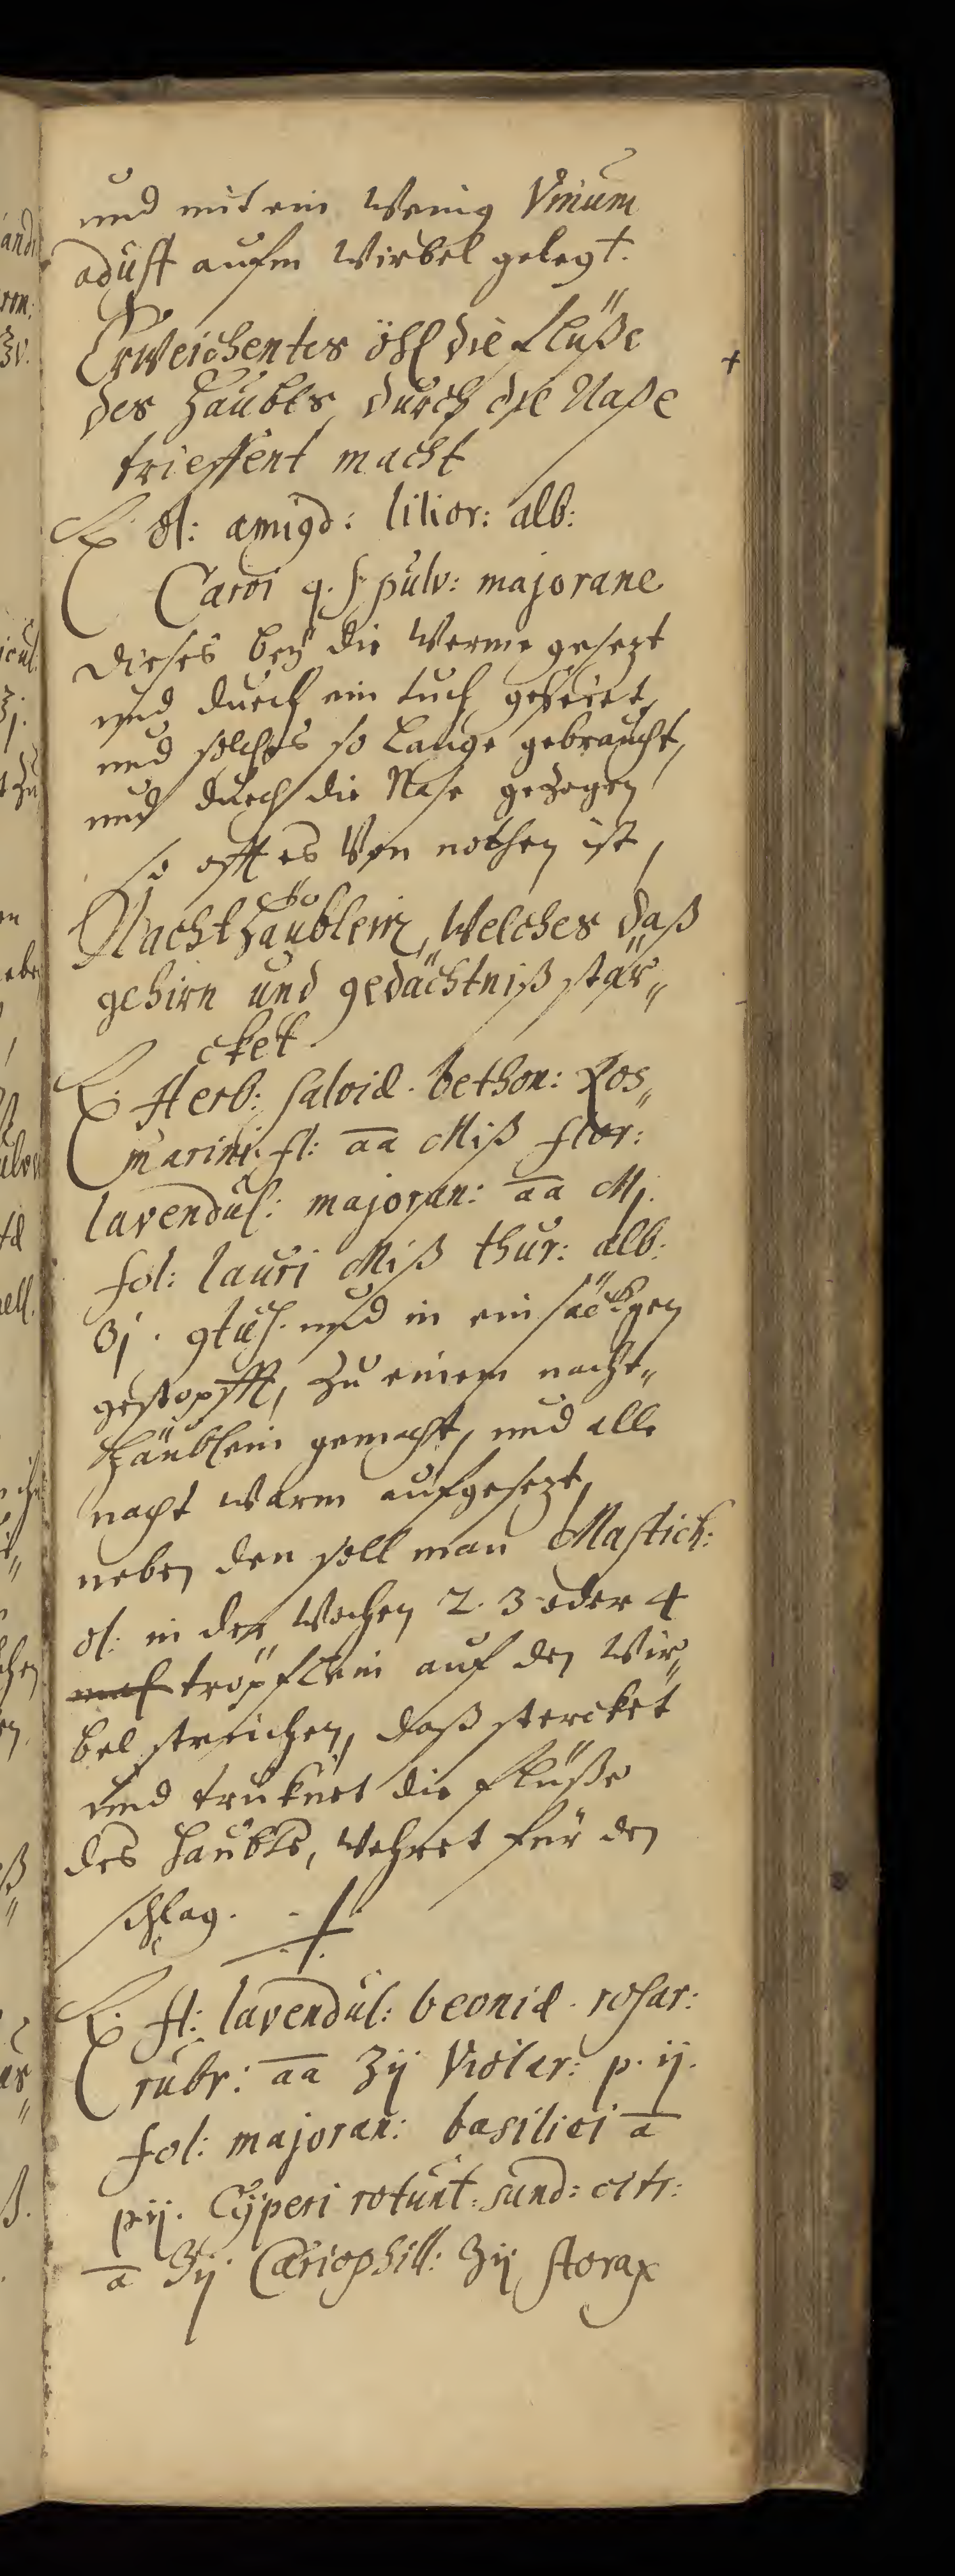 und mit ein Wenig Vinum
adust aufm Wirbel gelegt.
Erweichentes öhl die flüße
des Haubts durch die Naße +
trieffent macht
℞ ol: amigd: lilior: alb:
Caroi q. s. pulv: majorane
dieses beÿ die Werme gesezt
und durch ein tuch geseiet,
und solches so Lange gebraucht,
und durch die Nase gezogen
so offt es Von nöthen ist,
Nachthäublein, Welches daß
gehirn und gedächtniß stär„
cket.
℞ Herb: salviæ. bethon: Ros„
marini: fl: āā Miß flor:
lavendul: majoran: āā Mj.
fol: lauri Miß thur: alb:
ʒj. gstus. und in ein säckgen
gestopfft, zu einem nacht„
häublein gemacht, und alle
nacht warm aufgesezt,
neben den soll man Mastich:
ol: in der Wochen 2. 3 oder 4
mal tröpflein auf den Wir„
bel streichen, daß stercket
und truknet die flüße
des haubts, Wehret für den
schlag.
℞ fl: lavendul: beoniæ. rosar:
rubr: āā ʒij Violar: p. ij.
fol: majoran: basilici ā
p ij. Cÿperi rotunt: sand: citr:
ā ʒij Cariophill: ʒij storax